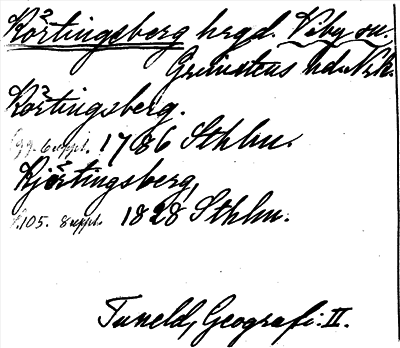 Körtingsberg hrgd. Viby sn.
Grimstens hd. Nrk.
Körtingsberg.
99. 6 uppl. 1786 Sthlm.
Kjörtingsberg,
s.105. 8 uppl. 1828 Sthlm.
Tuneld, Geografi. II.